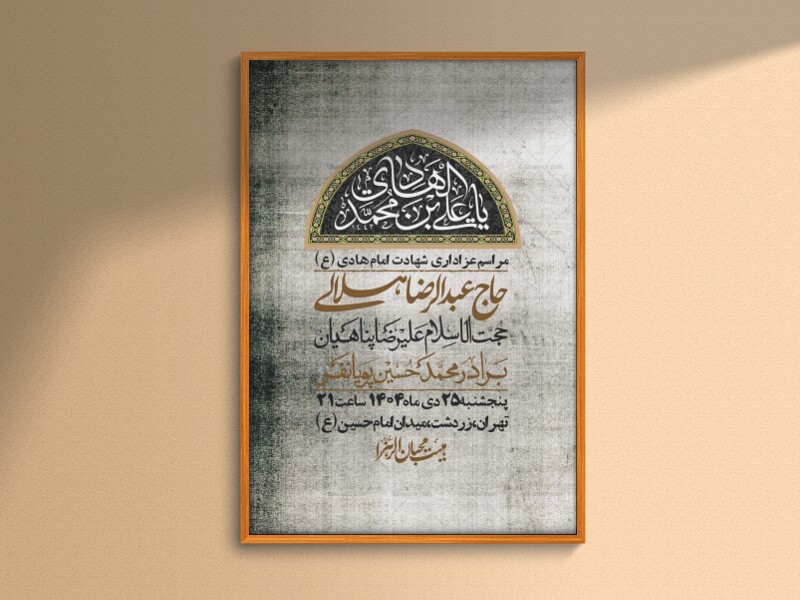 یا علی بن محمد الهادی
مراسم عزاداری شهادت امام هادی (ع)
حاج عبدالرضا هلالی
حجت الاسلام علیرضا پناهیان
برادر محمد حسین پویانفر
پنجشنبه ۲۵ دی ماه ۱۴۰۴ ساعت ۲۱
تهران، زردشت، میدان امام حسین (ع)
هیئت محبان الزهرا